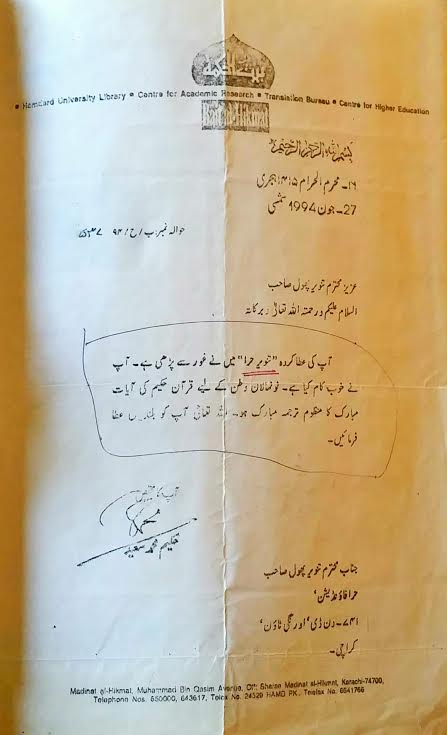 بیت الحکمۃ
• Hamdard University Library • Centre for Academic Research • Translation Bureau • Centre for Higher Education
Bait al-Hikmat
بسم اللہ الرحمن الرحیم
۱۶۔ محرم الحرام ۱۴۱۵ ہجری
27۔ جون 1994 شمسی
حوالہ نمبر: ب / ح / ۹۴ /
عزیز محترم تنویر پھول صاحب
السلام علیکم ورحمتہ اللہ تعالیٰ وبرکاتہ
آپ کی عطا کردہ "تنویر حرا" میں نے غور سے پڑھی ہے۔ آپ
نے خوب کام کیا ہے۔ نونہالان وطن کے لیے قرآن حکیم کی آیات
مبارک کا منظوم ترجمہ مبارک ہو۔ اللہ تعالیٰ آپ کو بلندیاں عطا
فرمائیں۔
آپ کا مخلص
حکیم محمد سعید
جناب محترم تنویر پھول صاحب
حرا فاؤنڈیشن'
۷۴۱۔ ون ڈی' اورنگی ٹاؤن'
کراچی۔
Madinat al-Hikmat, Muhammad Bin Qasim Avenue, Off: Sharae Madinat al-Hikmat, Karachi-74700,
Telephone Nos. 650000, 643617, Telex No. 24529 HAMD PK, Telefax No. 6641766